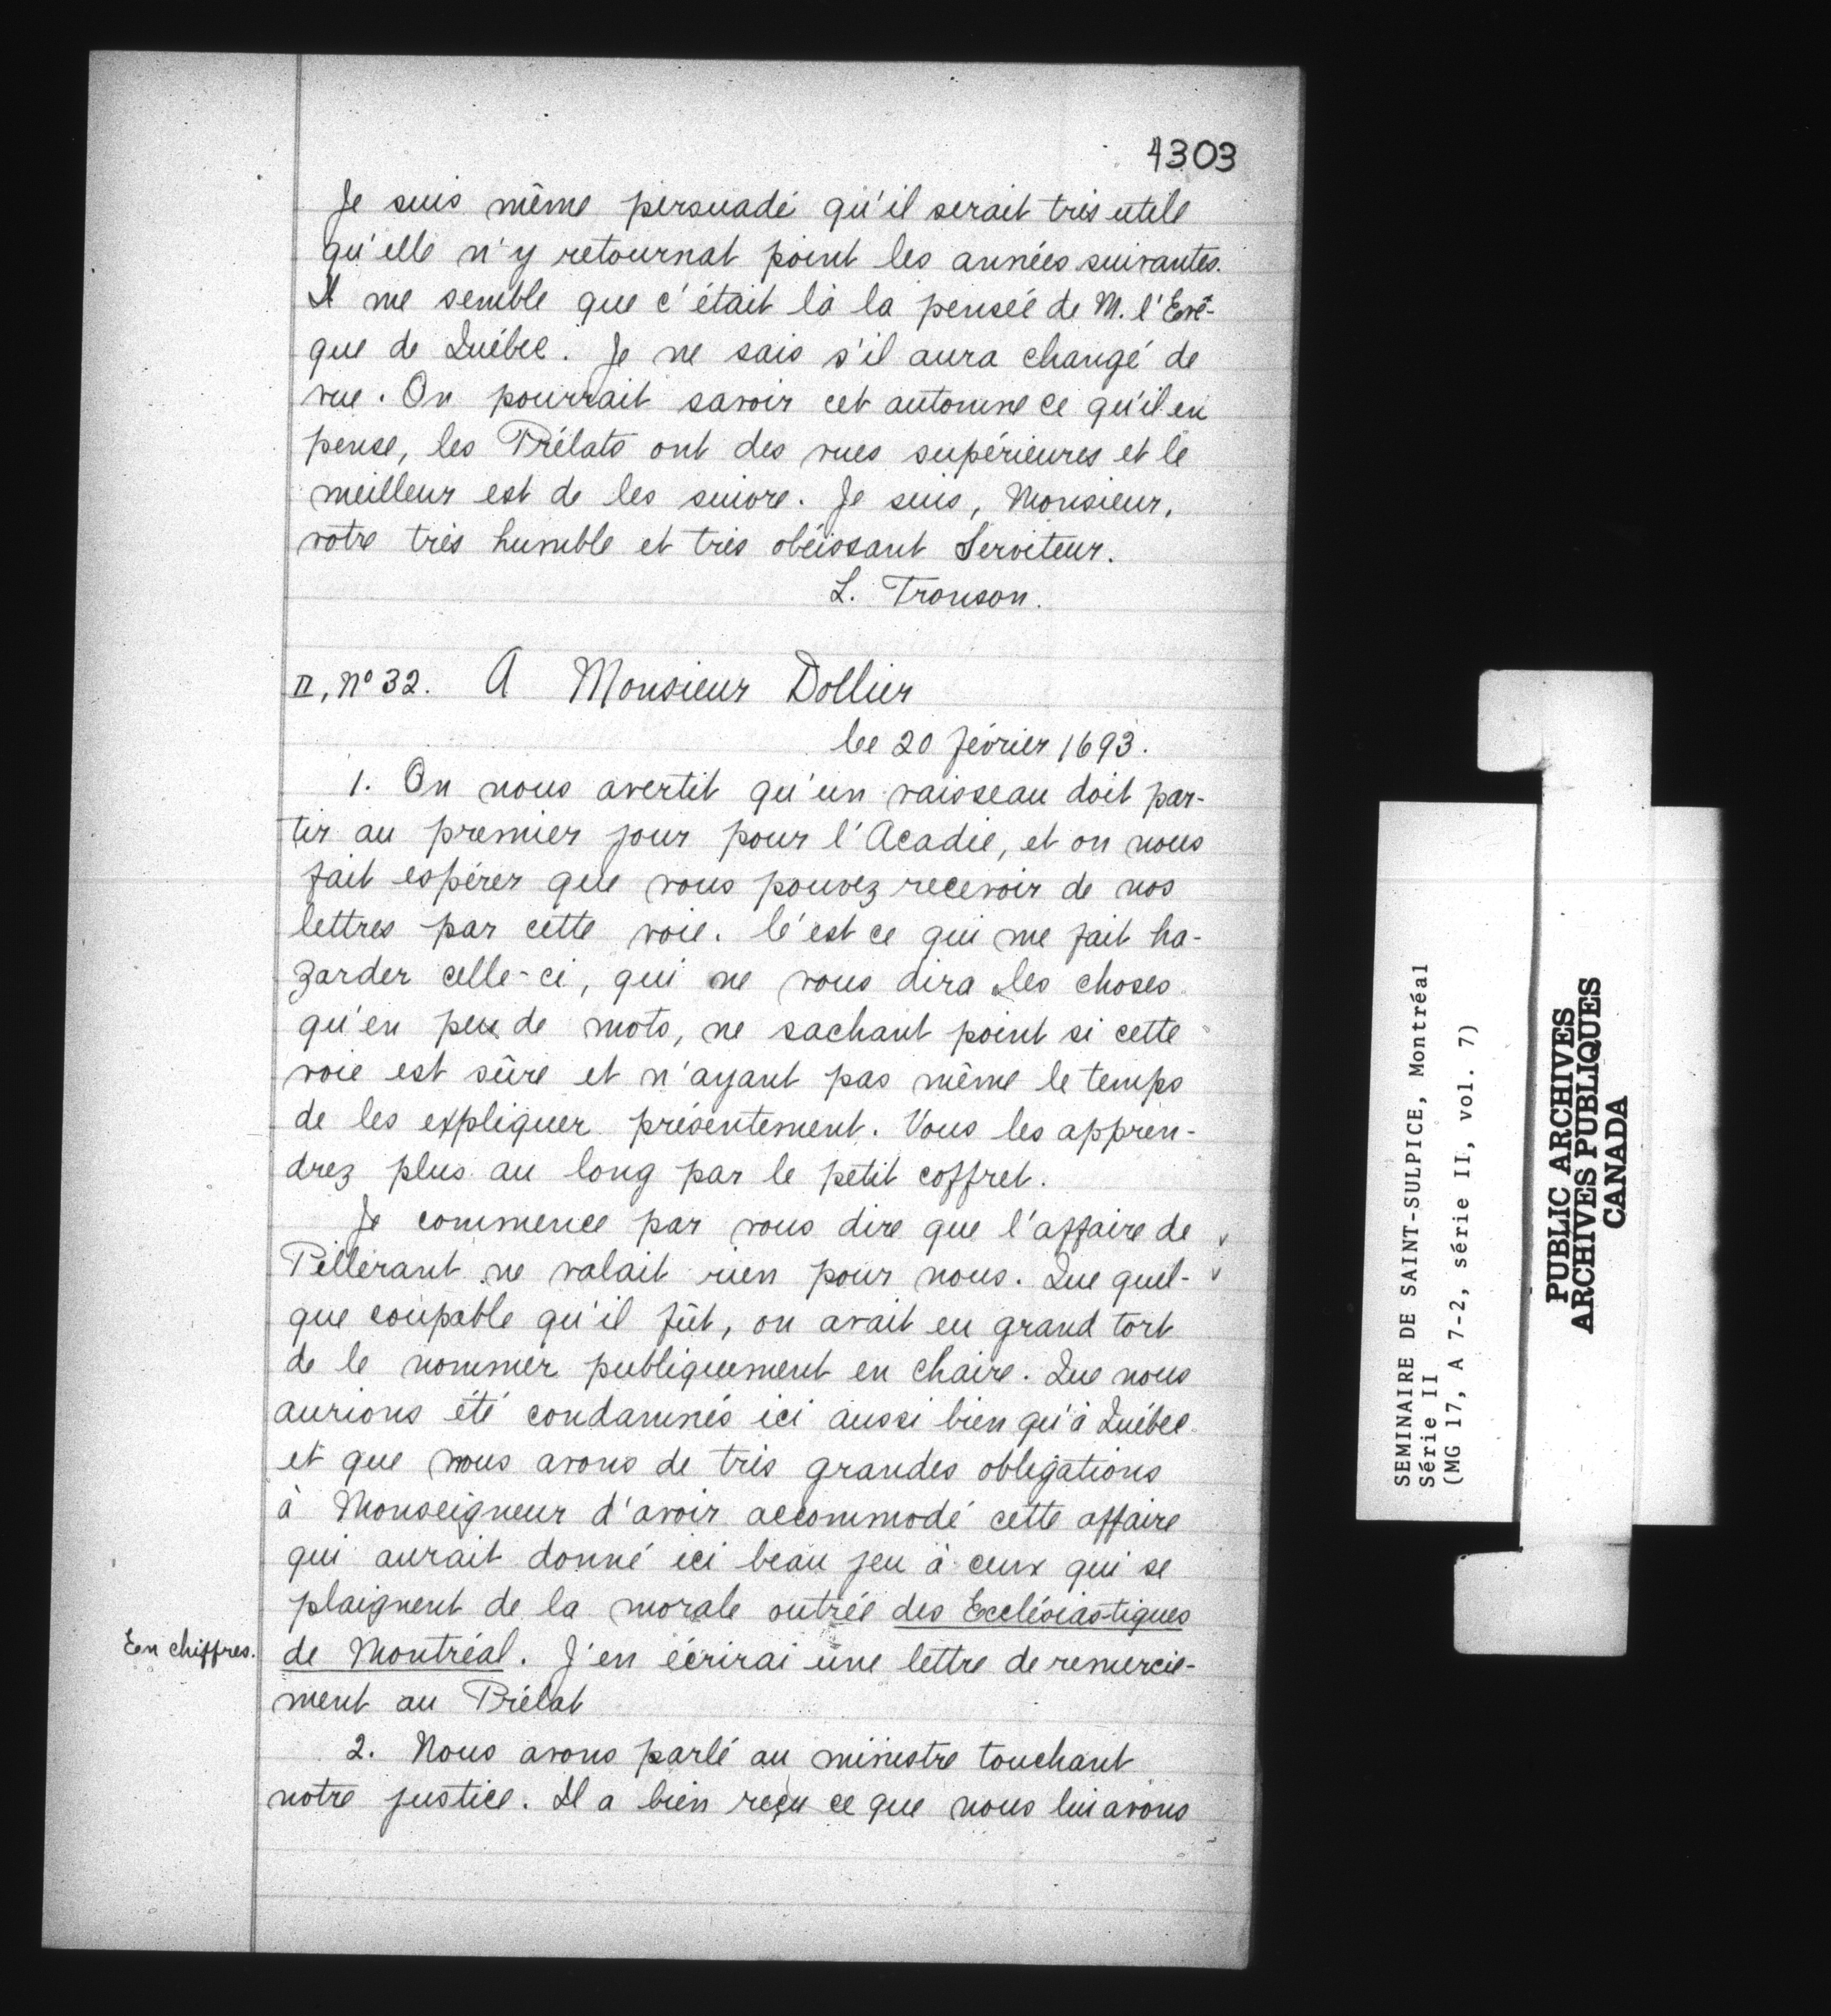 4303
Je suis même persuadé qu'il serait très utile
qu'elle n'y retournat point les années suivantes.
Il me semble que c'était là la pensée de M. l'Evê-
que de Québec. Je ne sais s'il aura changé de
vue. On pourrait savoir cet automne ce qu'il en
pense, les Prélats ont des vues supérieures et le
meilleur est de les suivre. Je suis, Monsieur,
votre très humble et très obéissant Serviteur.
L. Tronson.
II, No 32. A Monsieur Dollier
le 20 février 1693.
1. On nous avertit qu'un vaisseau doit par-
tir au premier jour pour l'Acadie, et on nous
fait espérer que vous pouvez recevoir de nos
lettres par cette voie. C'est ce qui me fait ha-
zarder celle-ci, qui ne vous dira les choses
qu'en peu de mots, ne sachant point si cette
voie est sûre et n'ayant pas même le temps
de les expliquer présentement. Vous les appren-
drez plus au long par le petit coffret.
Je commence par vous dire que l'affaire de
Pillerant ne valait rien pour nous. Que quel-
que coupable qu'il fût, on avait eu grand tort
de le nommer publiquement en chaire. Que nous
aurions été condamnés ici aussi bien qu'à Québec
et que nous avons de très grandes obligations
à Monseigneur d'avoir accommodé cette affaire
qui aurait donné ici beau jeu à ceux qui se
plaignent de la morale outrée des Ecclésiastiques
En chiffres.
de Montréal. J'en écrirai une lettre de remercie-
ment au Prélat
2. Nous avons parlé au ministre touchant
notre justice. Il a bien reçu ce que nous lui avons
SEMINAIRE DE SAINT-SULPICE, Montréal
Série II
(MG 17, A 7-2, série II, vol. 7)
PUBLIC ARCHIVES
ARCHIVES PUBLIQUES
CANADA